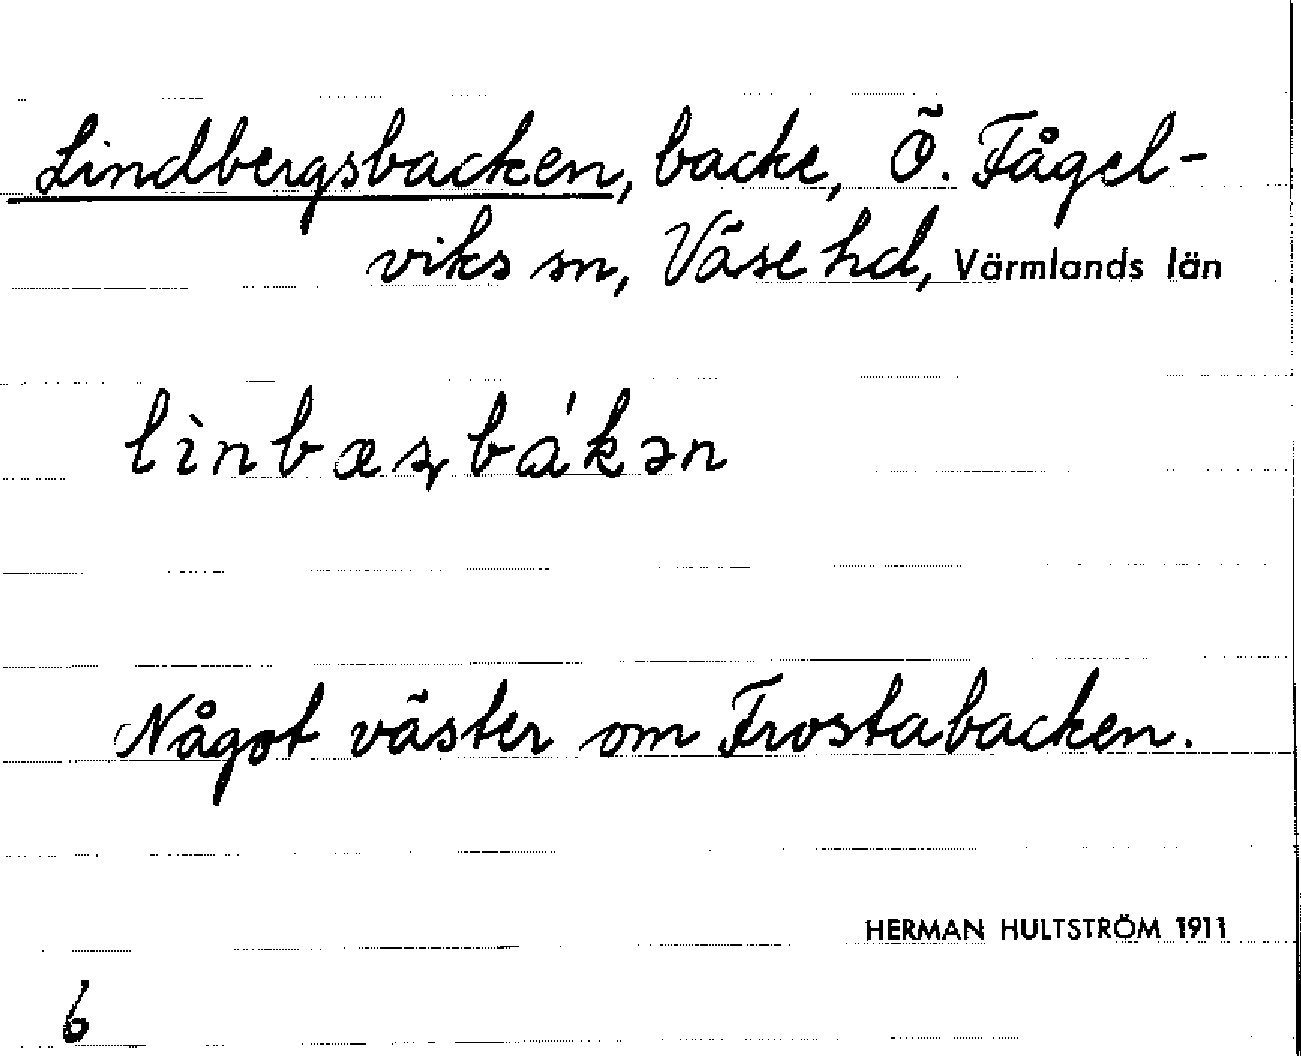 Lindbergsbacken, backe, Ö. Fågel-
viks sn, Väse hd, Värmlands län
lìnbæʂbá'kən
Något väster om Frostabacken.
HERMAN HULTSTRÖM 1911
6